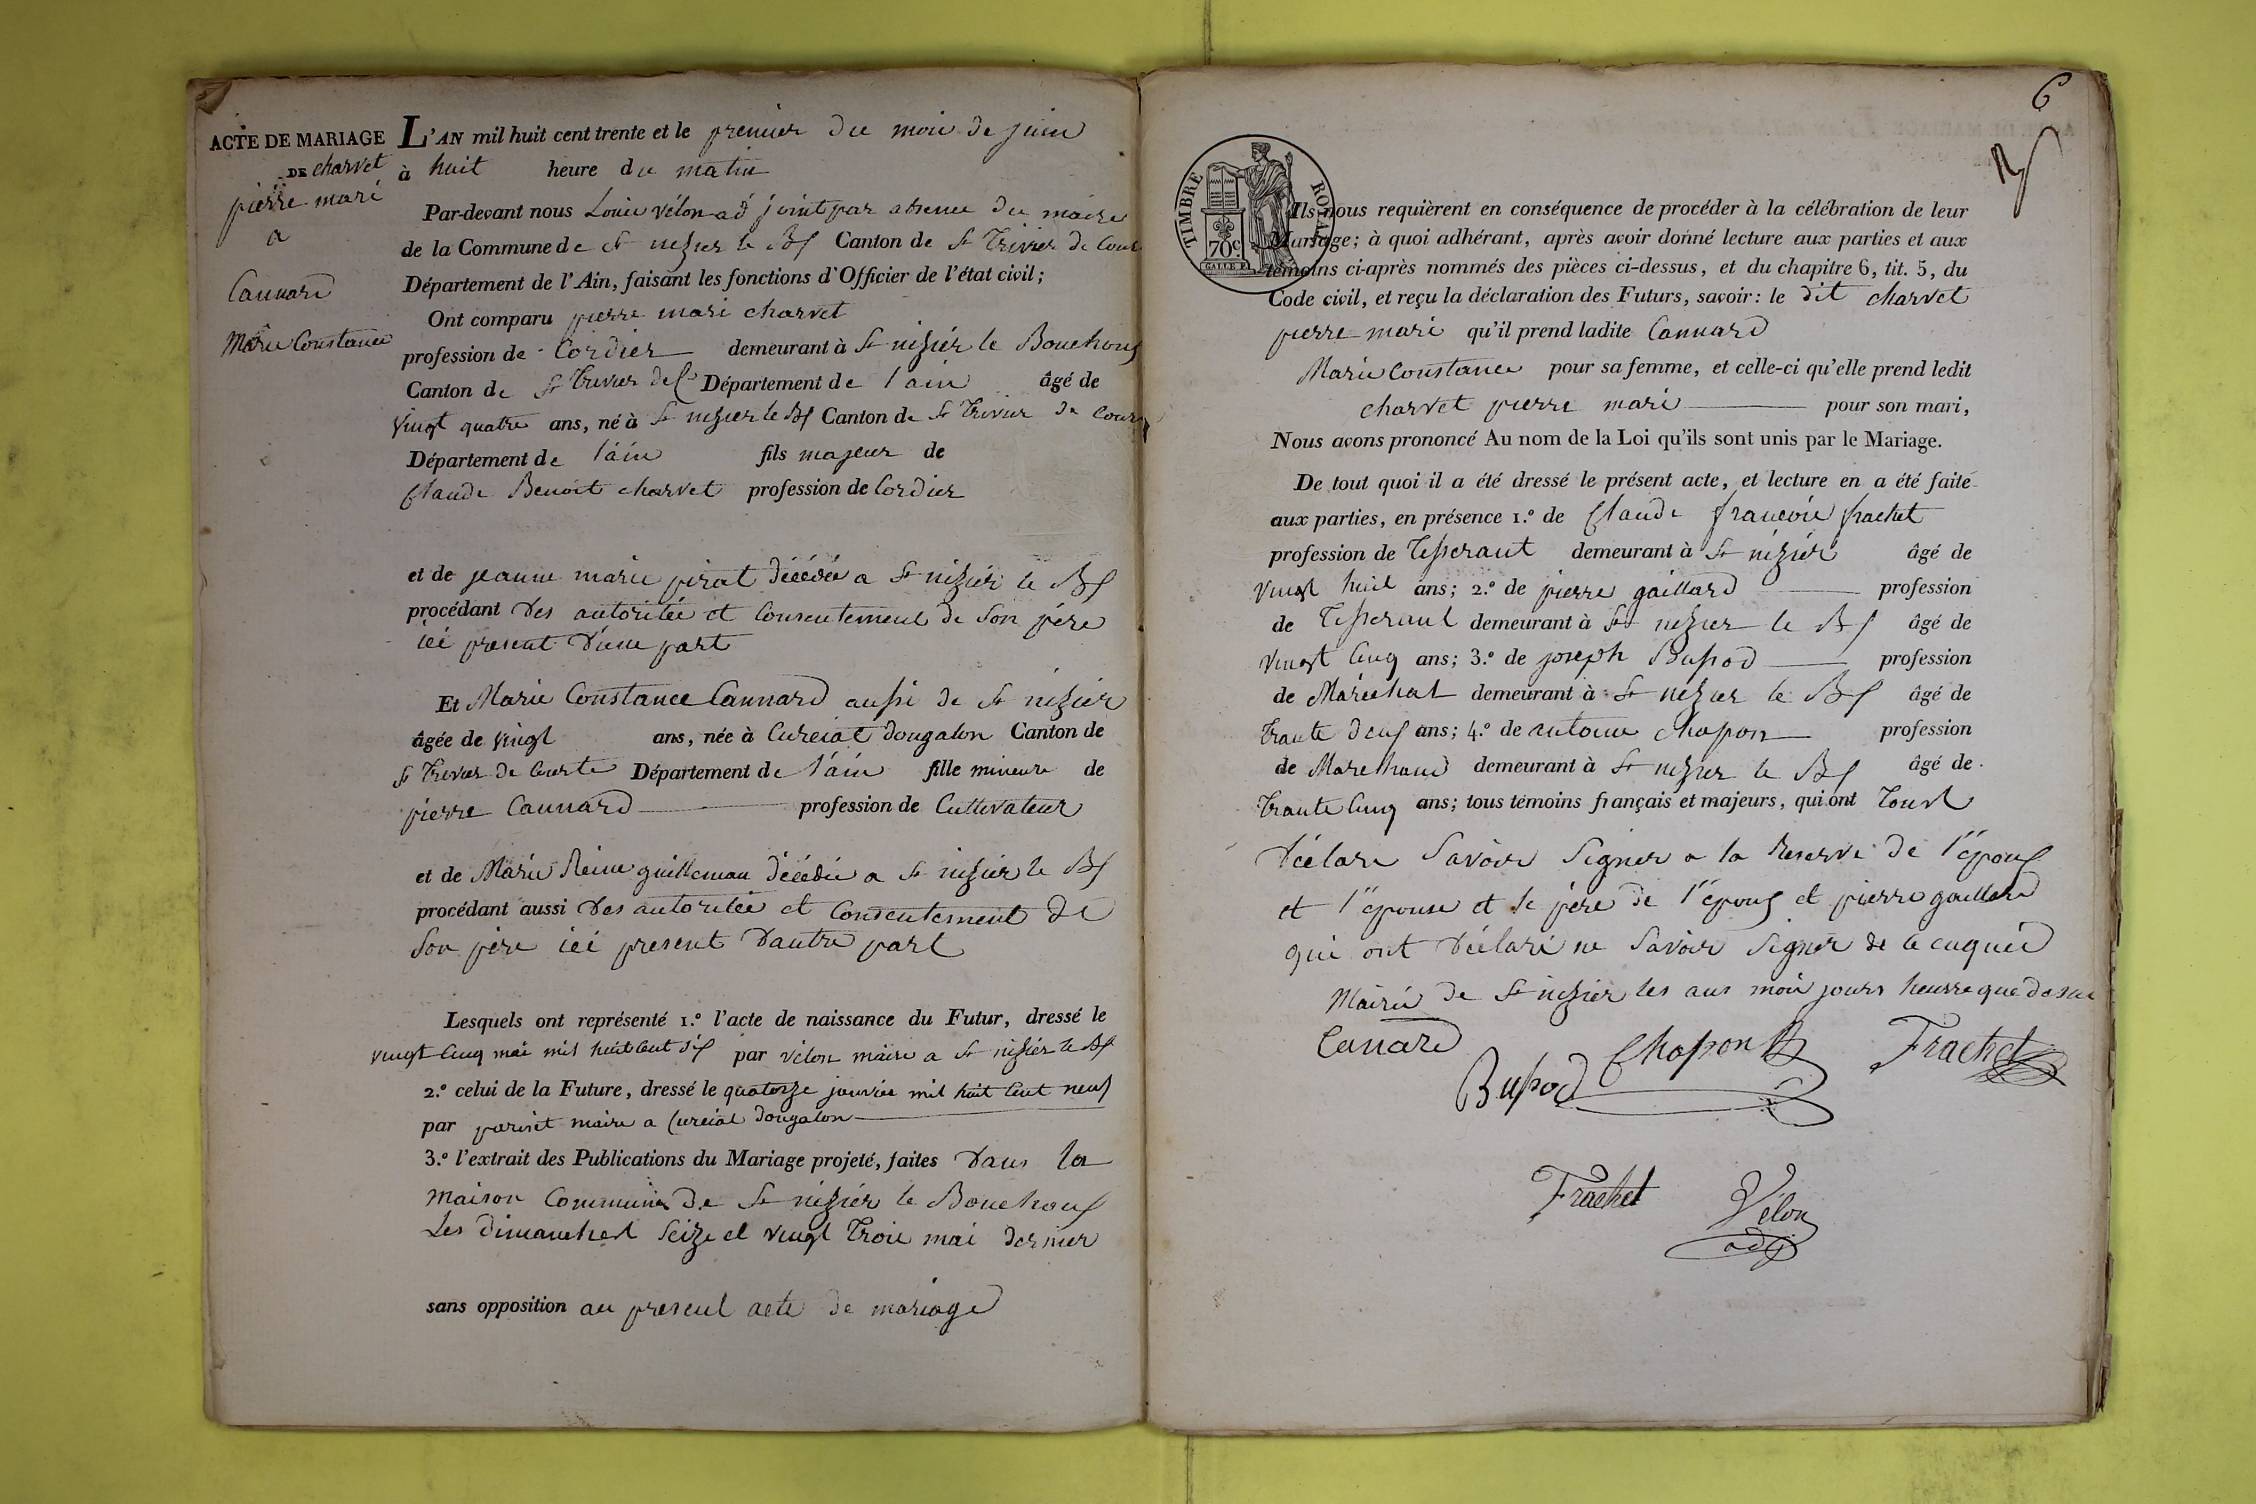 ACTE DE MARIAGE
DE charvet
pierre mari
a
Cannard
Marie Constance
L'AN mil huit cent trente et le premier du moi de juin
à huit heure du matin
Par-devant nous Louis vélon adjoint par absence du maire
de la Commune de St nizier le Bf Canton de St Trivier de Cour
Département de l'Ain, faisant les fonctions d'Officier de l'état civil;
Ont comparu pierre mari charvet
profession de Cordier demeurant à St nizier le Bouchoux
Canton de St Trivier de C Département de l'ain âgé de
vingt quatre ans, né à St nizier le Bf Canton de St Trivier de Cour
Département de l'ain fils majeur de
Claude Benoit charvet profession de Cordier
et de jeanne marie pirat décédée a St nizier le Bf
procédant des autoritée et Consentement de son père
ici present d'une part
Et Marie Constance Cannard aussi de St nizier
âgée de vingt ans, née à Curciat dongalon Canton de
St Trivier de Courte Département de l'ain fille mineure de
pierre Cannard profession de Cultivateur
et de Marie Reine guilleman décédée a St nizier le Bf
procédant aussi des autoritée et Consentement de
Son père ici present d'autre part
Lesquels ont représenté 1.º l'acte de naissance du Futur, dressé le
vingt Cinq mai mil huit Cent six par vélon maire a St nizier le Bf
2.º celui de la Future, dressé le quatorze janvier mil huit Cent neuf
par parisit maire a Curciat dongalon
3.º l'extrait des Publications du Mariage projeté, faites dans la
maison Commune de St nizier le Bouchoux
Les dimanchest Seize et vingt Troie mai dernier
sans opposition au present acte de mariage
6
TIMBRE ROYAL
70 c
Ils nous requièrent en conséquence de procéder à la célébration de leur
Mariage; à quoi adhérant, après avoir donné lecture aux parties et aux
témoins ci-après nommés des pièces ci-dessus, et du chapitre 6, tit. 5, du
Code civil, et reçu la déclaration des Futurs, savoir: le dit charvet
pierre mari qu'il prend ladite Cannard
Marie Constance pour sa femme, et celle-ci qu'elle prend ledit
charvet pierre mari pour son mari,
Nous avons prononcé Au nom de la Loi qu'ils sont unis par le Mariage.
De tout quoi il a été dressé le présent acte, et lecture en a été faite
aux parties, en présence 1.º de Claude françois frachet
profession de Tisserant demeurant à St nizier âgé de
vingt huit ans; 2.º de pierre gaillard profession
de Tisserant demeurant à St nizier le Bf âgé de
vingt Cinq ans; 3.º de joseph Bussod profession
de Maréchal demeurant à St nizier le Bf âgé de
Trante deux ans; 4.º de antoine chapon profession
de Marchand demeurant à St nizier le Bf âgé de
Trante Cinq ans; tous témoins français et majeurs, qui ont Toust
déclare Savoir Signer a la Reserve de l'époux
et l'épouse et le père de l'époux et pierre gaillard
qui ont déclaré ne Savoir Signer de ce enquis
Mairie de St nizier les ans moi jours heurre que desus
Canard
Bussod
Chapon
Frachet
Frachet
Velon
adj